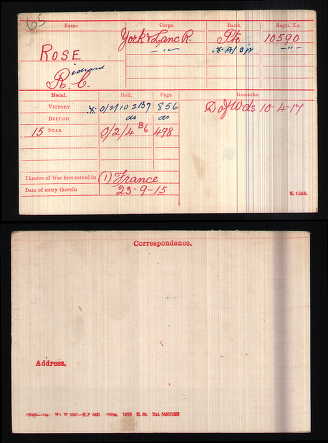 Name. Corps. Rank. Regtl. No.
ROSE York & Lanc R. Pte 10590
—"— A/Cpl —"—
Richard
R. C.
Medal. Roll. Page. Remarks.
Victory 0/2/102B9 856 D of Wds 10-4-17
British do do
15 Star 0/2/4 B6 498
Theatre of War first served in (1) France
Date of entry therein 23-9-15
K. 1380.
Correspondence.
Address.